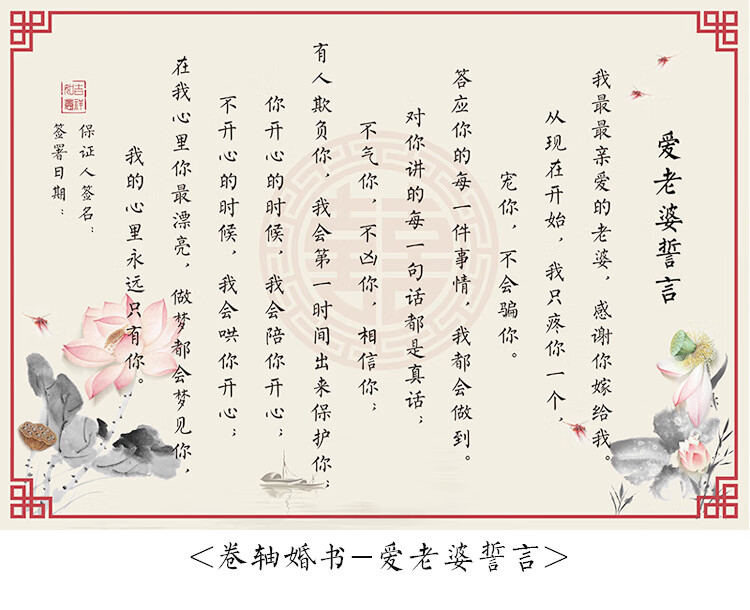 爱老婆誓言
我最最亲爱的老婆，感谢你嫁给我。
从现在开始，我只疼你一个，
宠你，不会骗你。
答应你的每一件事情，我都会做到。
对你讲的每一句话都是真话；
不气你，不凶你，相信你；
有人欺负你，我会第一时间出来保护你；
你开心的时候，我会陪你开心；
不开心的时候，我会哄你开心；
在我心里你最漂亮，做梦都会梦见你，
我的心里永远只有你。
保证人签名：
签署日期：
吉祥
如意
<卷轴婚书–爱老婆誓言>